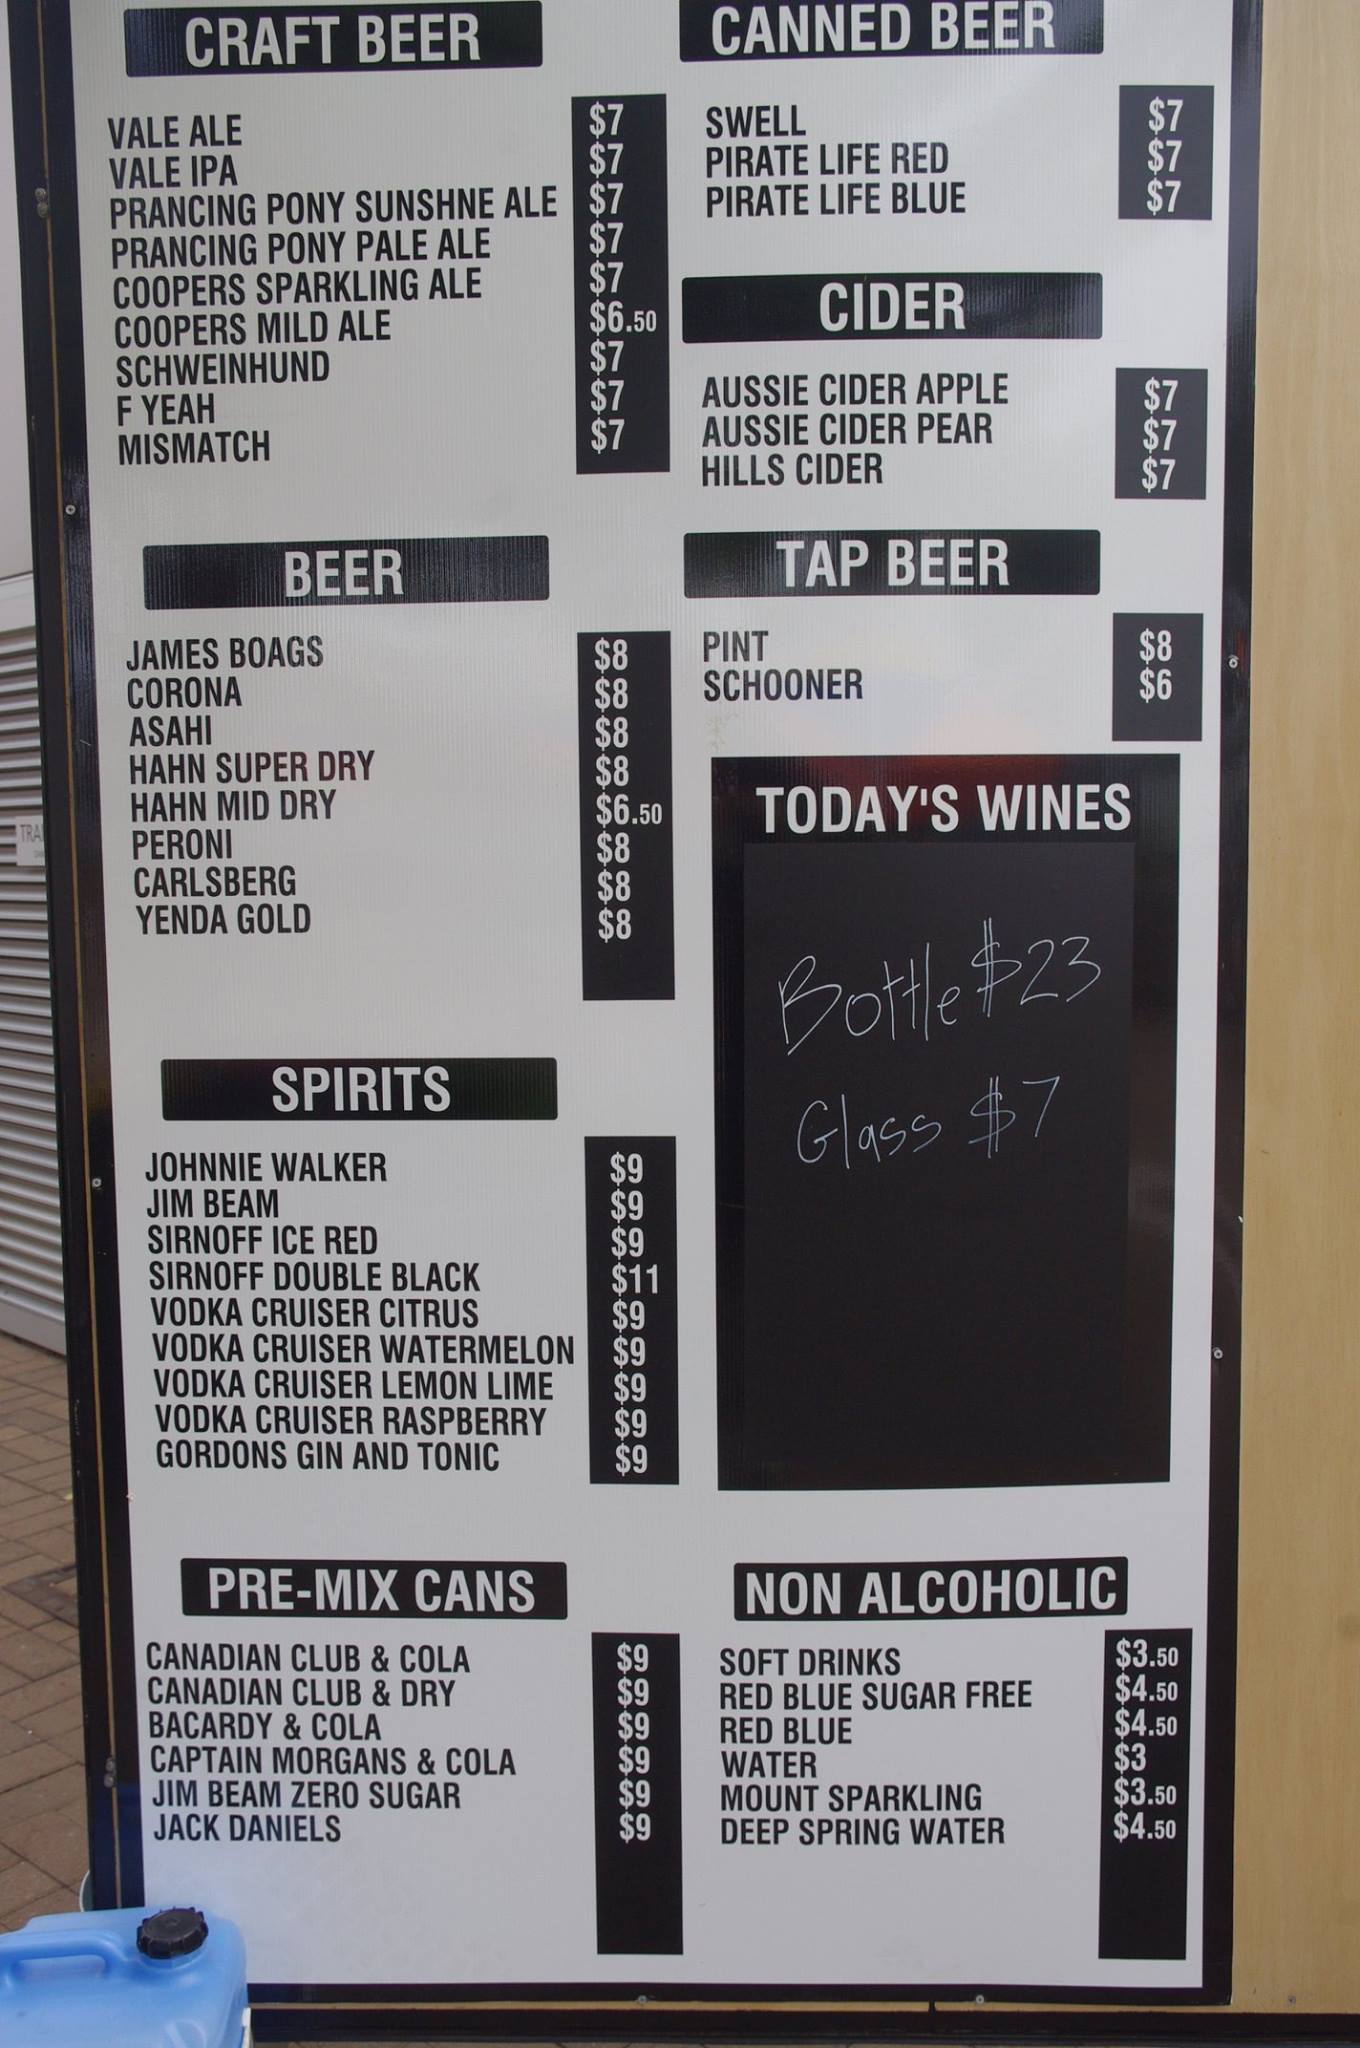 CRAFT BEER
VALE ALE $7
VALE IPA $7
PRANCING PONY SUNSHNE ALE $7
PRANCING PONY PALE ALE $7
COOPERS SPARKLING ALE $7
COOPERS MILD ALE $6.50
SCHWEINHUND $7
F YEAH $7
MISMATCH $7
BEER
JAMES BOAGS $8
CORONA $8
ASAHI $8
HAHN SUPER DRY $8
HAHN MID DRY $6.50
PERONI $8
CARLSBERG $8
YENDA GOLD $8
SPIRITS
JOHNNIE WALKER $9
JIM BEAM $9
SIRNOFF ICE RED $9
SIRNOFF DOUBLE BLACK $11
VODKA CRUISER CITRUS $9
VODKA CRUISER WATERMELON $9
VODKA CRUISER LEMON LIME $9
VODKA CRUISER RASPBERRY $9
GORDONS GIN AND TONIC $9
PRE-MIX CANS
CANADIAN CLUB & COLA $9
CANADIAN CLUB & DRY $9
BACARDY & COLA $9
CAPTAIN MORGANS & COLA $9
JIM BEAM ZERO SUGAR $9
JACK DANIELS $9
CANNED BEER
SWELL $7
PIRATE LIFE RED $7
PIRATE LIFE BLUE $7
CIDER
AUSSIE CIDER APPLE $7
AUSSIE CIDER PEAR $7
HILLS CIDER $7
TAP BEER
PINT $8
SCHOONER $6
TODAY'S WINES
Bottle $23
Glass $7
NON ALCOHOLIC
SOFT DRINKS $3.50
RED BLUE SUGAR FREE $4.50
RED BLUE $4.50
WATER $3
MOUNT SPARKLING $3.50
DEEP SPRING WATER $4.50
TRA